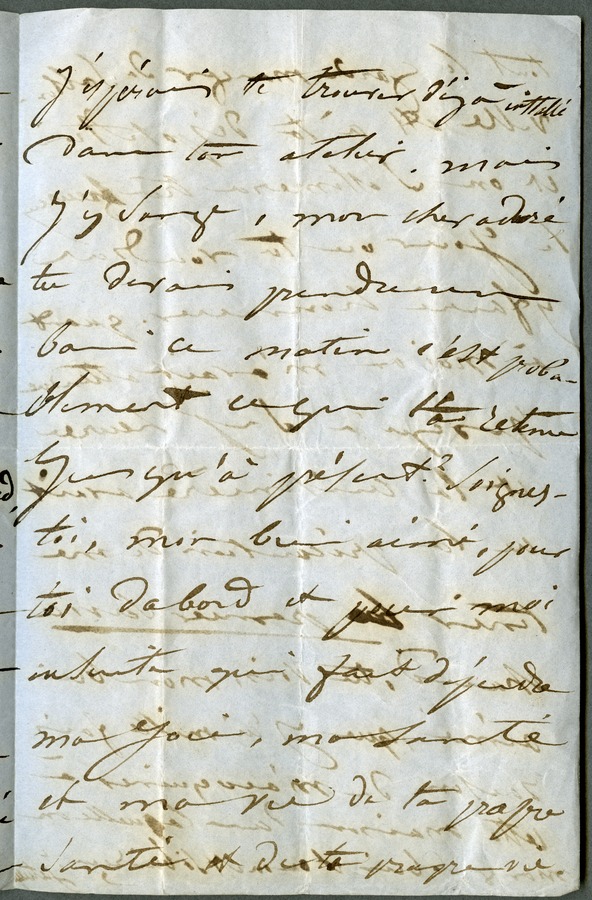 J'espérais te trouver déjà installé
dans ton atelier. mais
j'y songe, mon cher adoré
tu devais prendre un
bain ce matin c'est proba-
blement ce qui t'a retenu
jusqu'à présent? Soignes-
toi, mon bien aimé, pour
toi d'abord et pour moi
ensuite qui fait dépendre
ma joie, ma santé
et ma vie de ta propre
santé et de ta propre vie.